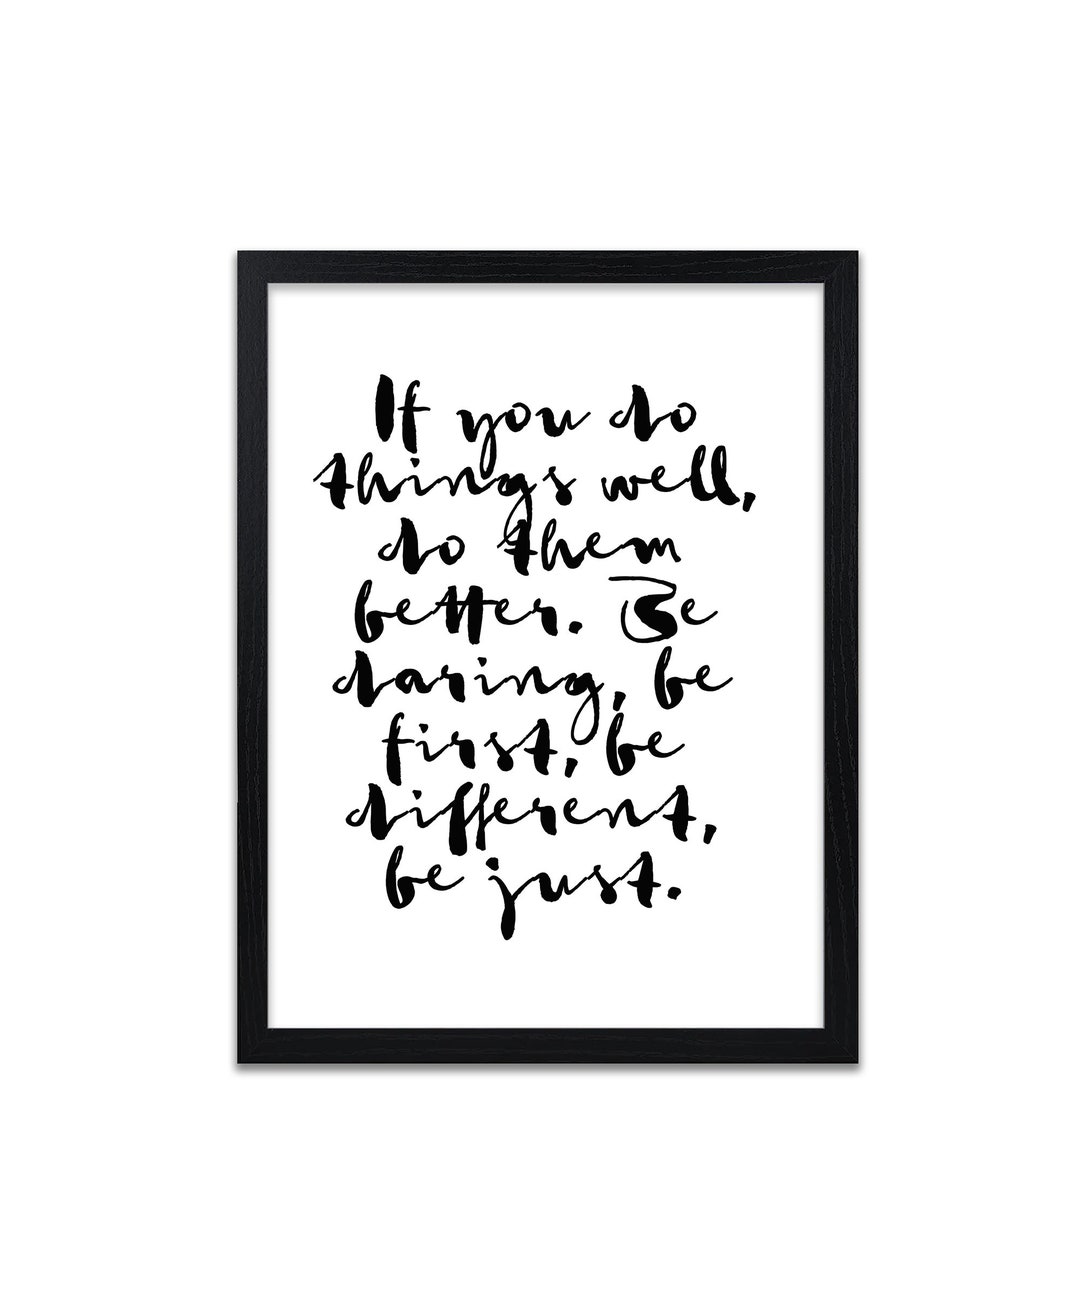 If you do
things well,
do them
better. Be
daring, be
first, be
different,
be just.